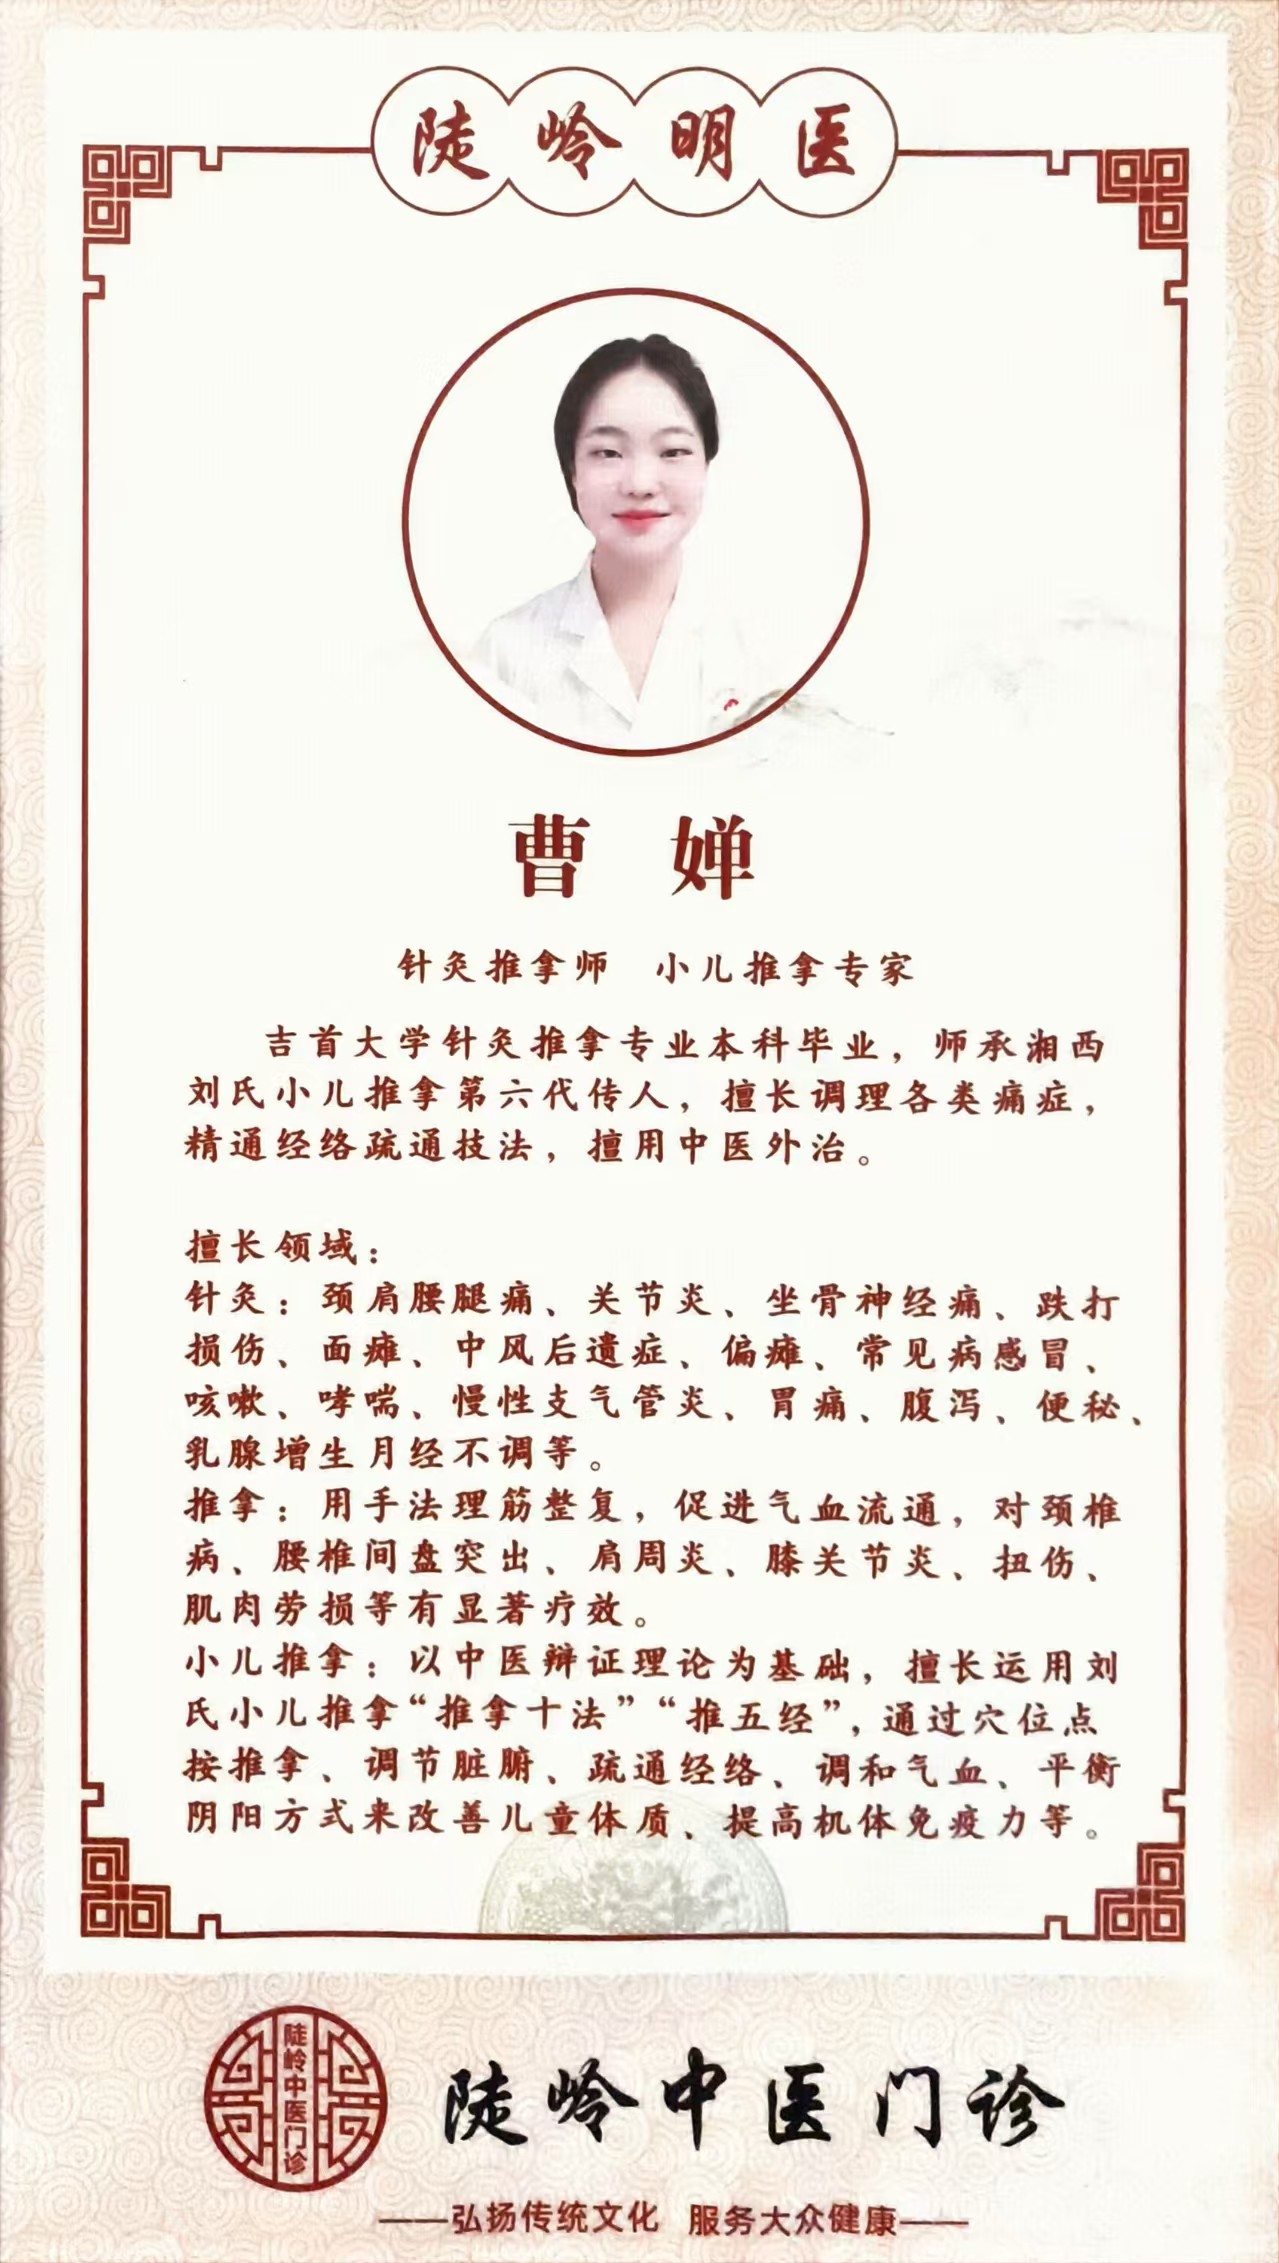 陡岭明医
曹婵
针灸推拿师 小儿推拿专家
吉首大学针灸推拿专业本科毕业，师承湘西
刘氏小儿推拿第六代传人，擅长调理各类痛症，
精通经络疏通技法，擅用中医外治。
擅长领域：
针灸：颈肩腰腿痛、关节炎、坐骨神经痛、跌打
损伤、面瘫、中风后遗症、偏瘫、常见病感冒、
咳嗽、哮喘、慢性支气管炎、胃痛、腹泻、便秘、
乳腺增生月经不调等。
推拿：用手法理筋整复，促进气血流通，对颈椎
病、腰椎间盘突出、肩周炎、膝关节炎、扭伤、
肌肉劳损等有显著疗效。
小儿推拿：以中医辩证理论为基础，擅长运用刘
氏小儿推拿“推拿十法”“推五经”，通过穴位点
按推拿、调节脏腑、疏通经络、调和气血、平衡
阴阳方式来改善儿童体质、提高机体免疫力等。
陡岭中医门诊
陡岭中医门诊
——弘扬传统文化 服务大众健康——